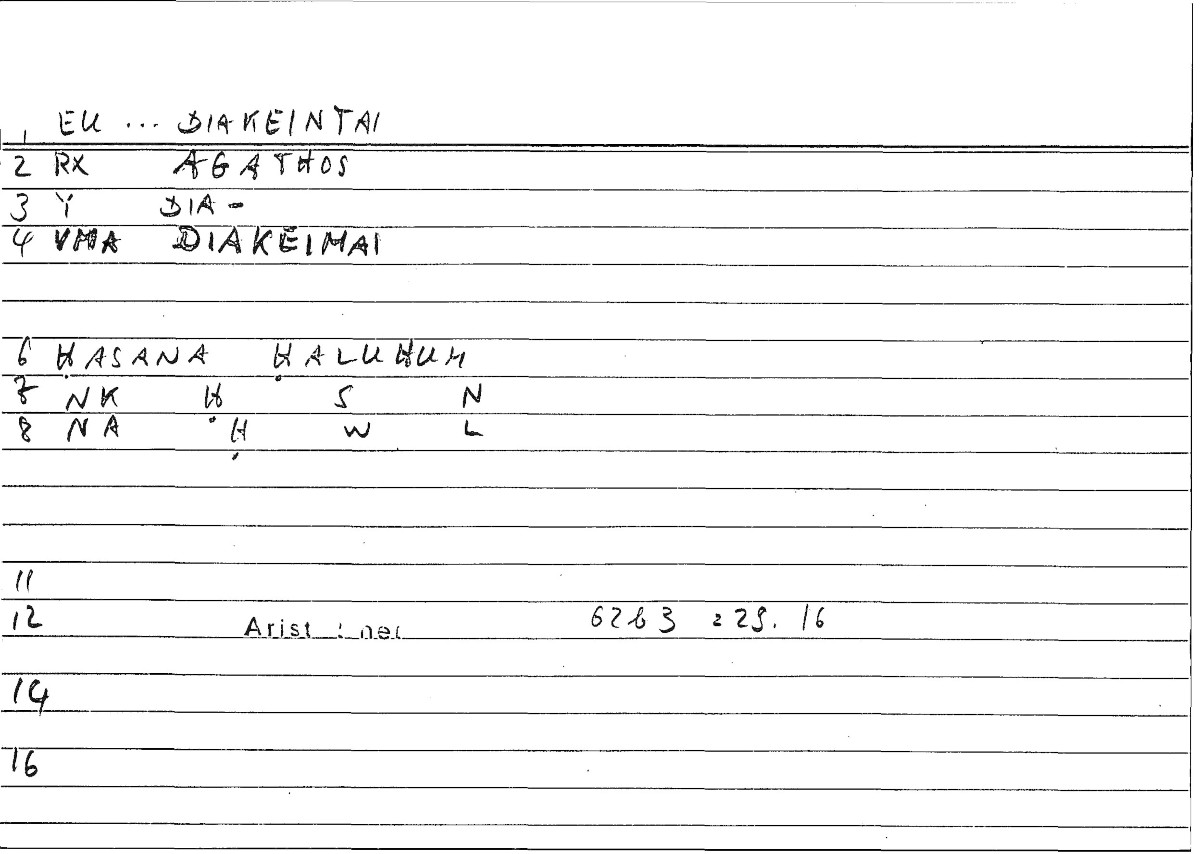 1 EU ... DIAKEINTAI
2 RX AGATHOS
3 Y DIA-
4 VMA DIAKEIMAI
6 ḤASANA ḤALUHUM
7 NK Ḥ S N
8 NA Ḥ W L
11
12 Arist 62b3 = 29. 16
14
16